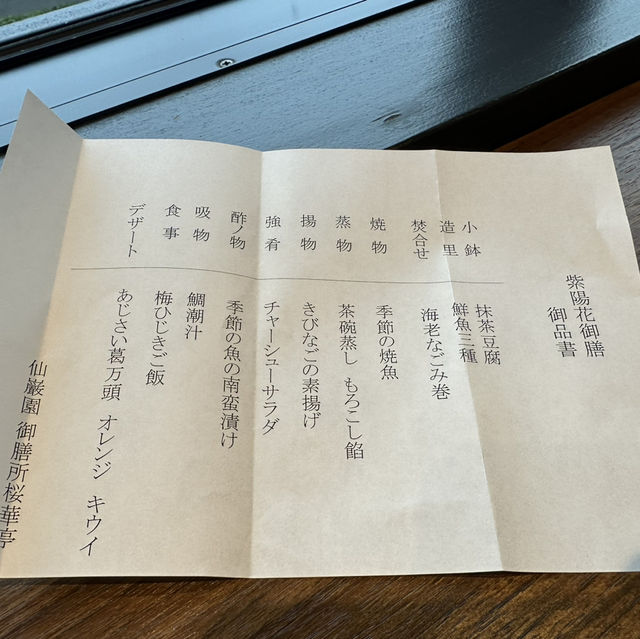 紫陽花御膳
御品書
小鉢 抹茶豆腐
造里 鮮魚三種
焚合せ 海老なごみ巻
焼物 季節の焼魚
蒸物 茶碗蒸し もろこし餡
揚物 きびなごの素揚げ
強肴 チャーシューサラダ
酢ノ物 季節の魚の南蛮漬け
吸物 鯛潮汁
食事 梅ひじきご飯
デザート あじさい葛万頭 オレンジ キウイ
仙巌園 御膳所桜華亭